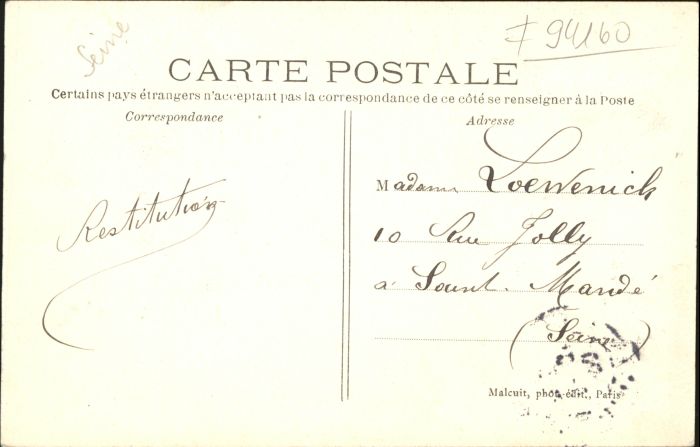 Seine
# 94160
CARTE POSTALE
Certains pays étrangers n'acceptant pas la correspondance de ce côté se renseigner à la Poste
Correspondance
Adresse
Restitution
Madame Loewenich
10 Rue Jolly
à Saint. Mandé
(Seine)
Malcuit, phot-édit., Paris